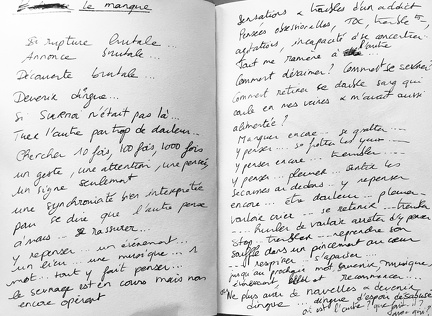 le manque
La rupture brutale ...
Annonce brutale ...
Découverte brutale ...
Devenir dingue ...
Si n'était pas là ...
Tuer l'autre par trop de douleur ...
Chercher 10 fois, 100 fois, 1000 fois
un geste, une attention, une pensée,
un signe seulement
une synchronicité bien interprétée
pour se dire que l'autre pense
à nous. se rassurer ...
y repenser ... un événement ...
un lieu ... une musique ... 1
mot ... tout y fait penser ...
le sevrage est en cours mais non
encore opérant
Sensations & troubles d'un addict
Pensées obsessionnelles, TOC, troubles
agitations, incapacité à se concentrer
tout me ramène à l'autre
Comment désaimer ? Comment se sevrer ?
Comment retirer ce double sang qui
coule en mes veines & m'avait aussi
alimentée ?
Manquer encore ... se gratter ...
y penser ... se frotter les yeux ...
y penser encore ... trembler ...
y penser ... pleurer ... sentir les
secousses au dedans ... y repenser
encore ... être douleur ... pleurer ...
vouloir crier ... se retenir ... trembler
... hurler de vouloir arrêter d'y penser
Stop trembler ... reprendre son
souffle dans un pincement au coeur
respirer s'apaiser ...
jusqu'au prochain mot, souvenir, musique,
événement, recommencer ...
Ne plus avoir de nouvelles & devenir
dingue ... dingue d'espoir désabusé
où est l'autre ? que fait-il ?